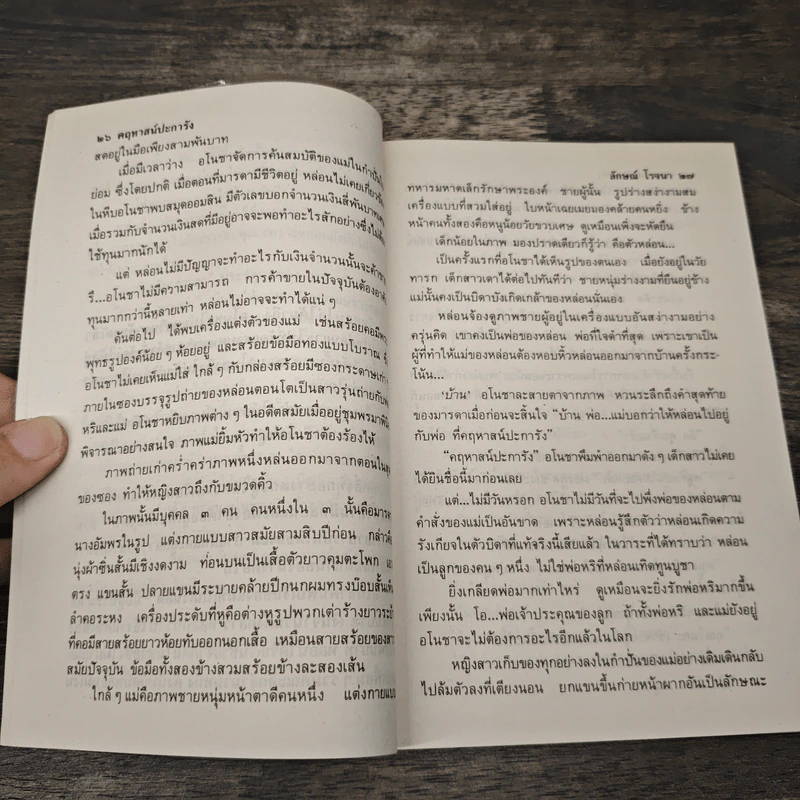 ๒๖ คฤหาสน์ปะการัง
สดอยู่ในมือเพียงสามพันบาท
เมื่อมีเวลาว่าง อโนชาจัดการค้นสมบัติของแม่ในกำปั่น
ย่อม ซึ่งโดยปกติ เมื่อตอนที่มารดามีชีวิตอยู่ หล่อนไม่เคยเกี่ยว
ในหีบอโนชาพบสมุดออมสิน มีตัวเลขบอกจำนวนเงินสี่พันบาท
เมื่อรวมกับจำนวนเงินสดที่มีอยู่อาจจะพอทำอะไรสักอย่างซึ่งไม่
ใช้ทุนมากนักได้
แต่ หล่อนไม่มีปัญญาจะทำอะไรกับเงินจำนวนนั้นจะค้าขาย
รึ...อโนชาไม่มีความสามารถ การค้าขายในปัจจุบันต้องอาศัย
ทุนมากกว่านี้หลายเท่า หล่อนไม่อาจจะทำได้แน่ ๆ
ค้นต่อไป ได้พบเครื่องแต่งตัวของแม่ เช่นสร้อยคอมีพระ
พุทธรูปองค์น้อย ๆ ห้อยอยู่ และสร้อยข้อมือทองแบบโบราณ
อโนชาไม่เคยเห็นแม่ใส่ ใกล้ ๆ กับกล่องสร้อยมีซองกระดาษเก่า
ภายในซองบรรจุรูปถ่ายของหล่อนตอนโตเป็นสาวรุ่นถ่ายกับพ่อ
หริและแม่ อโนชาหยิบภาพต่าง ๆ ในอดีตสมัยเมื่ออยู่ชุมพรมาพิ
พิจารณาอย่างสนใจ ภาพแม่ยิ้มหัวทำให้อโนชาต้องร้องไห้
ภาพถ่ายเก่าคร่ำคร่าภาพหนึ่งหล่นออกมาจากตอนใน
ของซอง ทำให้หญิงสาวถึงกับขมวดคิ้ว
ในภาพนั้นมีบุคคล ๓ คน คนหนึ่งใน ๓ นั้นคือมารดา
นางอัมพรในรูป แต่งกายแบบสาวสมัยสามสิบปีก่อน กล่าวคือ
นุ่งผ้าซิ่นสั้นมีเชิงงดงาม ท่อนบนเป็นเสื้อตัวยาวคุมตะโพก
ตรง แขนสั้น ปลายแขนมีระบายคล้ายปีกนกผมทรงบ๊อบสั้นเห็น
ลำคอระหง เครื่องประดับที่หูคือต่างหูรูปพวกเต่าร้างยาวระย้า
ที่คอมีสายสร้อยยาวห้อยทับออกนอกเสื้อ เหมือนสายสร้อยของสาว
สมัยปัจจุบัน ข้อมือทั้งสองข้างสวมสร้อยข้างละสองเส้น
ใกล้ ๆ แม่คือภาพชายหนุ่มหน้าตาดีคนหนึ่ง แต่งกายแบบ
ลักษณ์ โรจนา ๒๗
ทหารมหาดเล็กรักษาพระองค์ ชายผู้นั้น รูปร่างสง่างามสม
เครื่องแบบที่สวมใส่อยู่ ใบหน้าเฉยเมยมองคล้ายคนหยิ่ง ข้าง
หน้าคนทั้งสองคือหนูน้อยวัยขวบเศษ ดูเหมือนเพิ่งจะหัดยืน
เด็กน้อยในภาพ มองปราดเดียวก็รู้ว่า คือตัวหล่อน...
เป็นครั้งแรกที่อโนชาได้เห็นรูปของตนเอง เมื่อยังอยู่ในวัย
ทารก เด็กสาวเดาได้ต่อไปทันทีว่า ชายหนุ่มร่างงามที่ยืนอยู่ข้าง
แม่นั้นคงเป็นบิดาบังเกิดเกล้าของหล่อนนั่นเอง
หล่อนจ้องดูภาพชายผู้อยู่ในเครื่องแบบอันสง่างามอย่าง
ครุ่นคิด เขาคงเป็นพ่อของหล่อน พ่อที่ใจดำที่สุด เพราะเขาเป็น
ผู้ที่ทำให้แม่ของหล่อนต้องหอบหิ้วหล่อนออกมาจากบ้านครั้งกระ-
โน้น...
‘บ้าน’ อโนชาละสายตาจากภาพ หวนระลึกถึงคำสุดท้าย
ของมารดาเมื่อก่อนจะสิ้นใจ “บ้าน พ่อ...แม่บอกว่าให้หล่อนไปอยู่
กับพ่อ ที่คฤหาสน์ปะการัง”
“คฤหาสน์ปะการัง” อโนชาพึมพำออกมาดัง ๆ เด็กสาวไม่เคย
ได้ยินชื่อนี้มาก่อนเลย
แต่...ไม่มีวันหรอก อโนชาไม่มีวันที่จะไปพึ่งพ่อของหล่อนตาม
คำสั่งของแม่เป็นอันขาด เพราะหล่อนรู้สึกตัวว่าหล่อนเกิดความ
รังเกียจในตัวบิดาที่แท้จริงนี้เสียแล้ว ในวาระที่ได้ทราบว่า หล่อน
เป็นลูกของคน ๆ หนึ่ง ไม่ใช่พ่อหริที่หล่อนเทิดทูนบูชา
ยิ่งเกลียดพ่อมากเท่าไหร่ ดูเหมือนจะยิ่งรักพ่อหริมากขึ้น
เพียงนั้น โอ...พ่อเจ้าประคุณของลูก ถ้าทั้งพ่อหริ และแม่ยังอยู่
อโนชาจะไม่ต้องการอะไรอีกแล้วในโลก
หญิงสาวเก็บของทุกอย่างลงในกำปั่นของแม่อย่างเดิมเดินกลับ
ไปล้มตัวลงที่เตียงนอน ยกแขนขึ้นก่ายหน้าผากอันเป็นลักษณะ